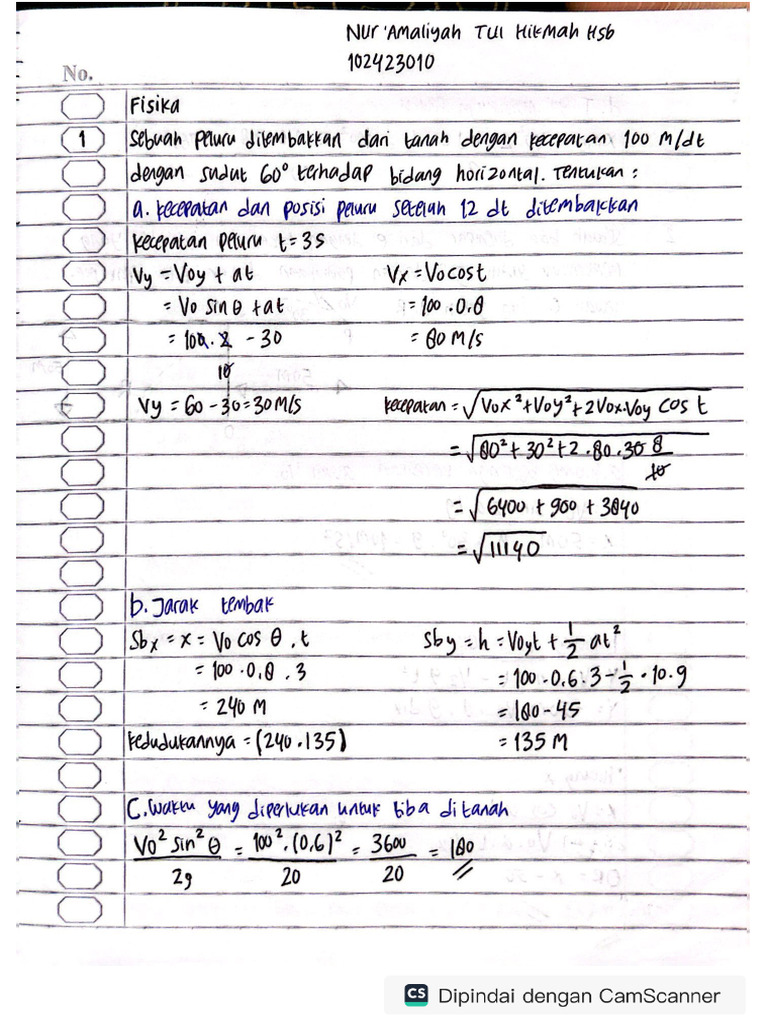 Nur 'Amaliyah Tul Hikmah Hsb
102423010
No.
Fisika
1 Sebuah peluru ditembakkan dari tanah dengan kecepatan 100 m/dt
dengan sudut 60° terhadap bidang horizontal. Tentukan :
a. kecepatan dan posisi peluru setelah 12 dt ditembakkan
kecepatan peluru t = 3s
Vy = Voy + at Vx = Vo cos t
= Vo sin θ + at = 100 . 0.8
= 100 . 2 - 30 = 80 m/s
10
Vy = 60 - 30 = 30 m/s kecepatan = √Vox² + Voy² + 2Vox.Voy cos t
= √80² + 30² + 2 . 80 . 30 8
10
= √6400 + 900 + 3840
= √11140
b. Jarak tembak
Sbx = x = Vo cos θ . t Sby = h = Voyt + 1/2 at²
= 100 . 0,8 . 3 = 100 . 0.6 . 3 - 1/2 . 10 . 9
= 240 m = 180 - 45
kedudukannya = (240 . 135) = 135 m
C. Waktu yang diperlukan untuk tiba di tanah
Vo² sin² θ / 2g = 100² . (0,6)² / 20 = 3600 / 20 = 180
CS Dipindai dengan CamScanner